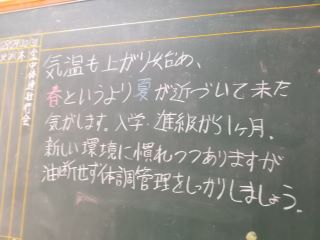 気温も上がり始め、
春というより夏が近づいて来た
気がします。入学・進級から1ヶ月。
新しい環境に慣れつつありますが
油断せず体調管理をしっかりしましょう。